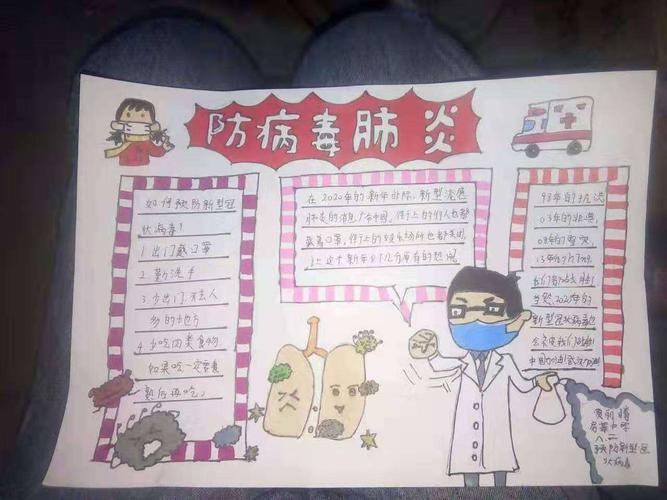 防病毒肺炎
如何预防新型冠
状病毒?
1 出门戴口罩
2 勤洗手
3 少出门,不去人
多的地方
4 少吃肉类食物
如果吃一定要煮
熟后再吃。
在2020年的新年非际,新型流感
肺炎的消息
中国,街上的行人也都
戴着口罩,街上的娱乐场所也都关闭
让这个新年少了几分原有的热闹
98年的洪涝
03年的非典
08年的雪灾
13年的H7N9
我们都战胜
当然2020年的
新型冠状病毒也
会被我们战胜
中国加油!武汉加油
八.二
预防新型冠
状病毒